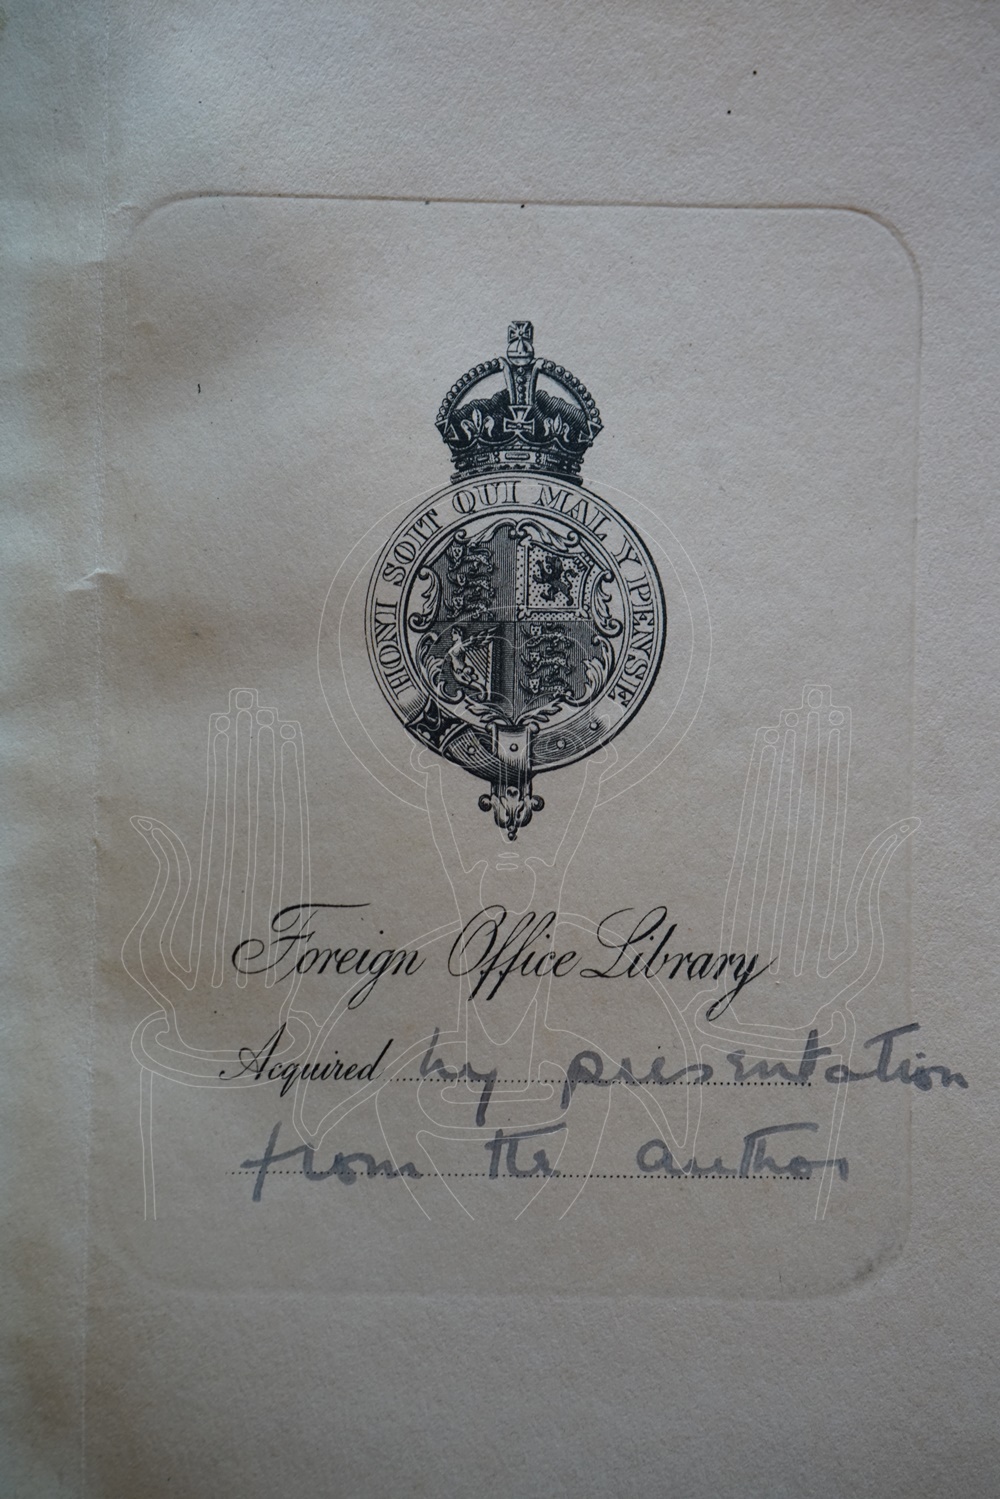 HONI SOIT QUI MAL Y PENSE
Foreign Office Library
Acquired by presentation
from the author